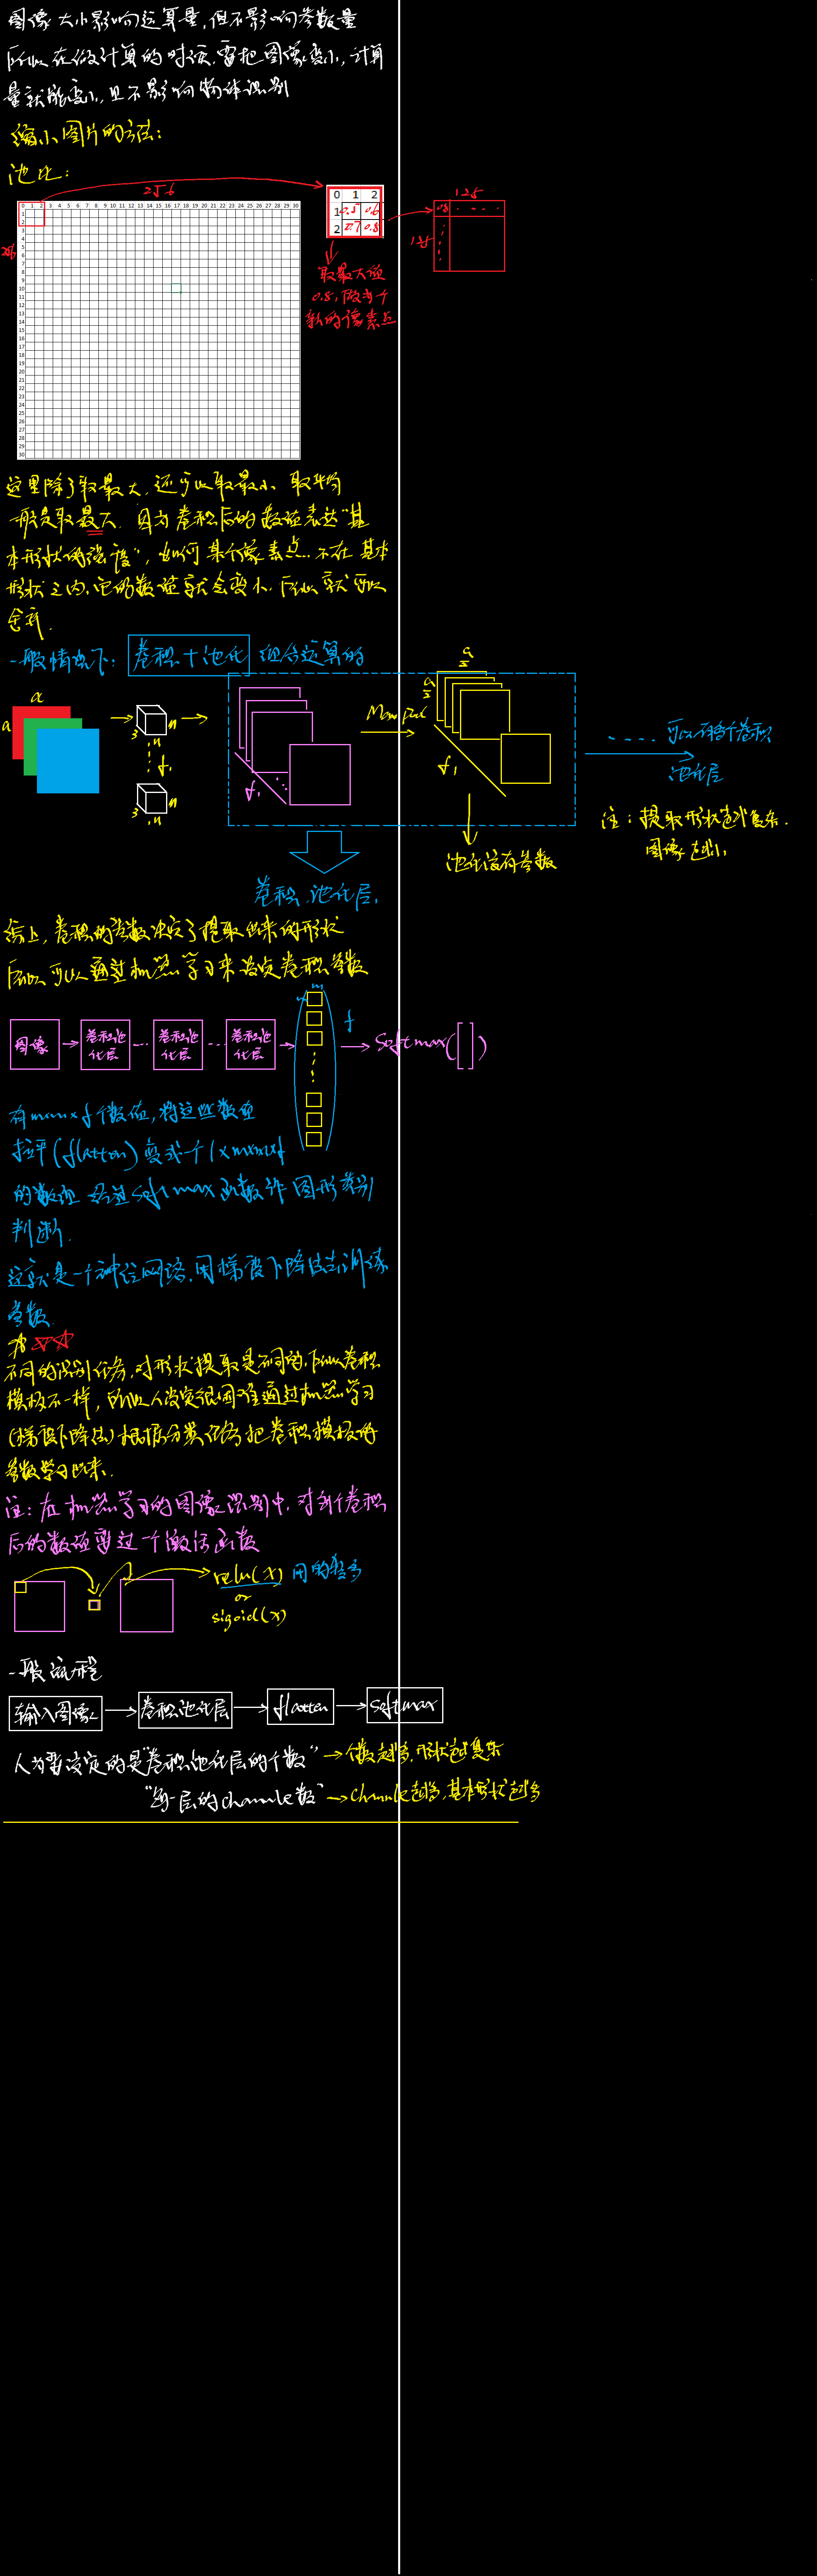 图像大小影响运算量,但不影响参数量
所以在做计算的时候,需把图像变小,计算
量就能变小,且不影响物体识别
缩小图片的方法:
池化:
256
256
0 1 2 3 4 5 6 7 8 9 10 11 12 13 14 15 16 17 18 19 20 21 22 23 24 25 26 27 28 29 30
1
2
3
4
5
6
7
8
9
10
11
12
13
14
15
16
17
18
19
20
21
22
23
24
25
26
27
28
29
30
0 1 2
1 0.5 0.6
2 0.7 0.8
取最大值
0.8,做为一个
新的像素点
125
125
0.8 . . . .
这里除了取最大,还可以取最小 取平均
一般是取最大 因为卷积后的数值表达"基
本形状的强度",如何某个像素点 不在基本
形状之内,它的数值就会变小,所以就可以
舍弃.
一般情况下: 卷积+池化 组合运算的
a
a
3 n n
f1
3 n n
f1
Max pool
a/2
a/2
f1
.... 可以有多个卷积
池化层
注:提取形状越复杂.
图像越小
池化没有参数
卷积.池化层.
综上,卷积的参数决定了提取出来的形状
所以可以通过机器学习来设定卷积参数
图像
卷积池
化层
...
卷积池
化层
...
卷积池
化层
m
m
f
Softmax([ ])
有m×m×f个数值,将这些数值
拉平(flatten)变成一个1×m×m×f
的数值 经过Softmax函数作图形类别
判断.
这就是一个神经网络,用梯度下降法去训练
参数.
不同的识别任务,对形状提取是不同的,所以卷积
模板不一样,所以人设定很困难通过机器学习
(梯度下降法)根据分类任务把卷积模板的
参数学习出来.
注:在机器学习的图像识别中,对每个卷积
后的数值要过一个激活函数
relu(x) 用的较多
or
sigoid(x)
一般流程
输入图像
卷积池化层
flatten
softmax
人为要设定的是"卷积池化层的个数" → 个数越多,形状越复杂
"每一层的channle数" → Channle越多,基本形状越多